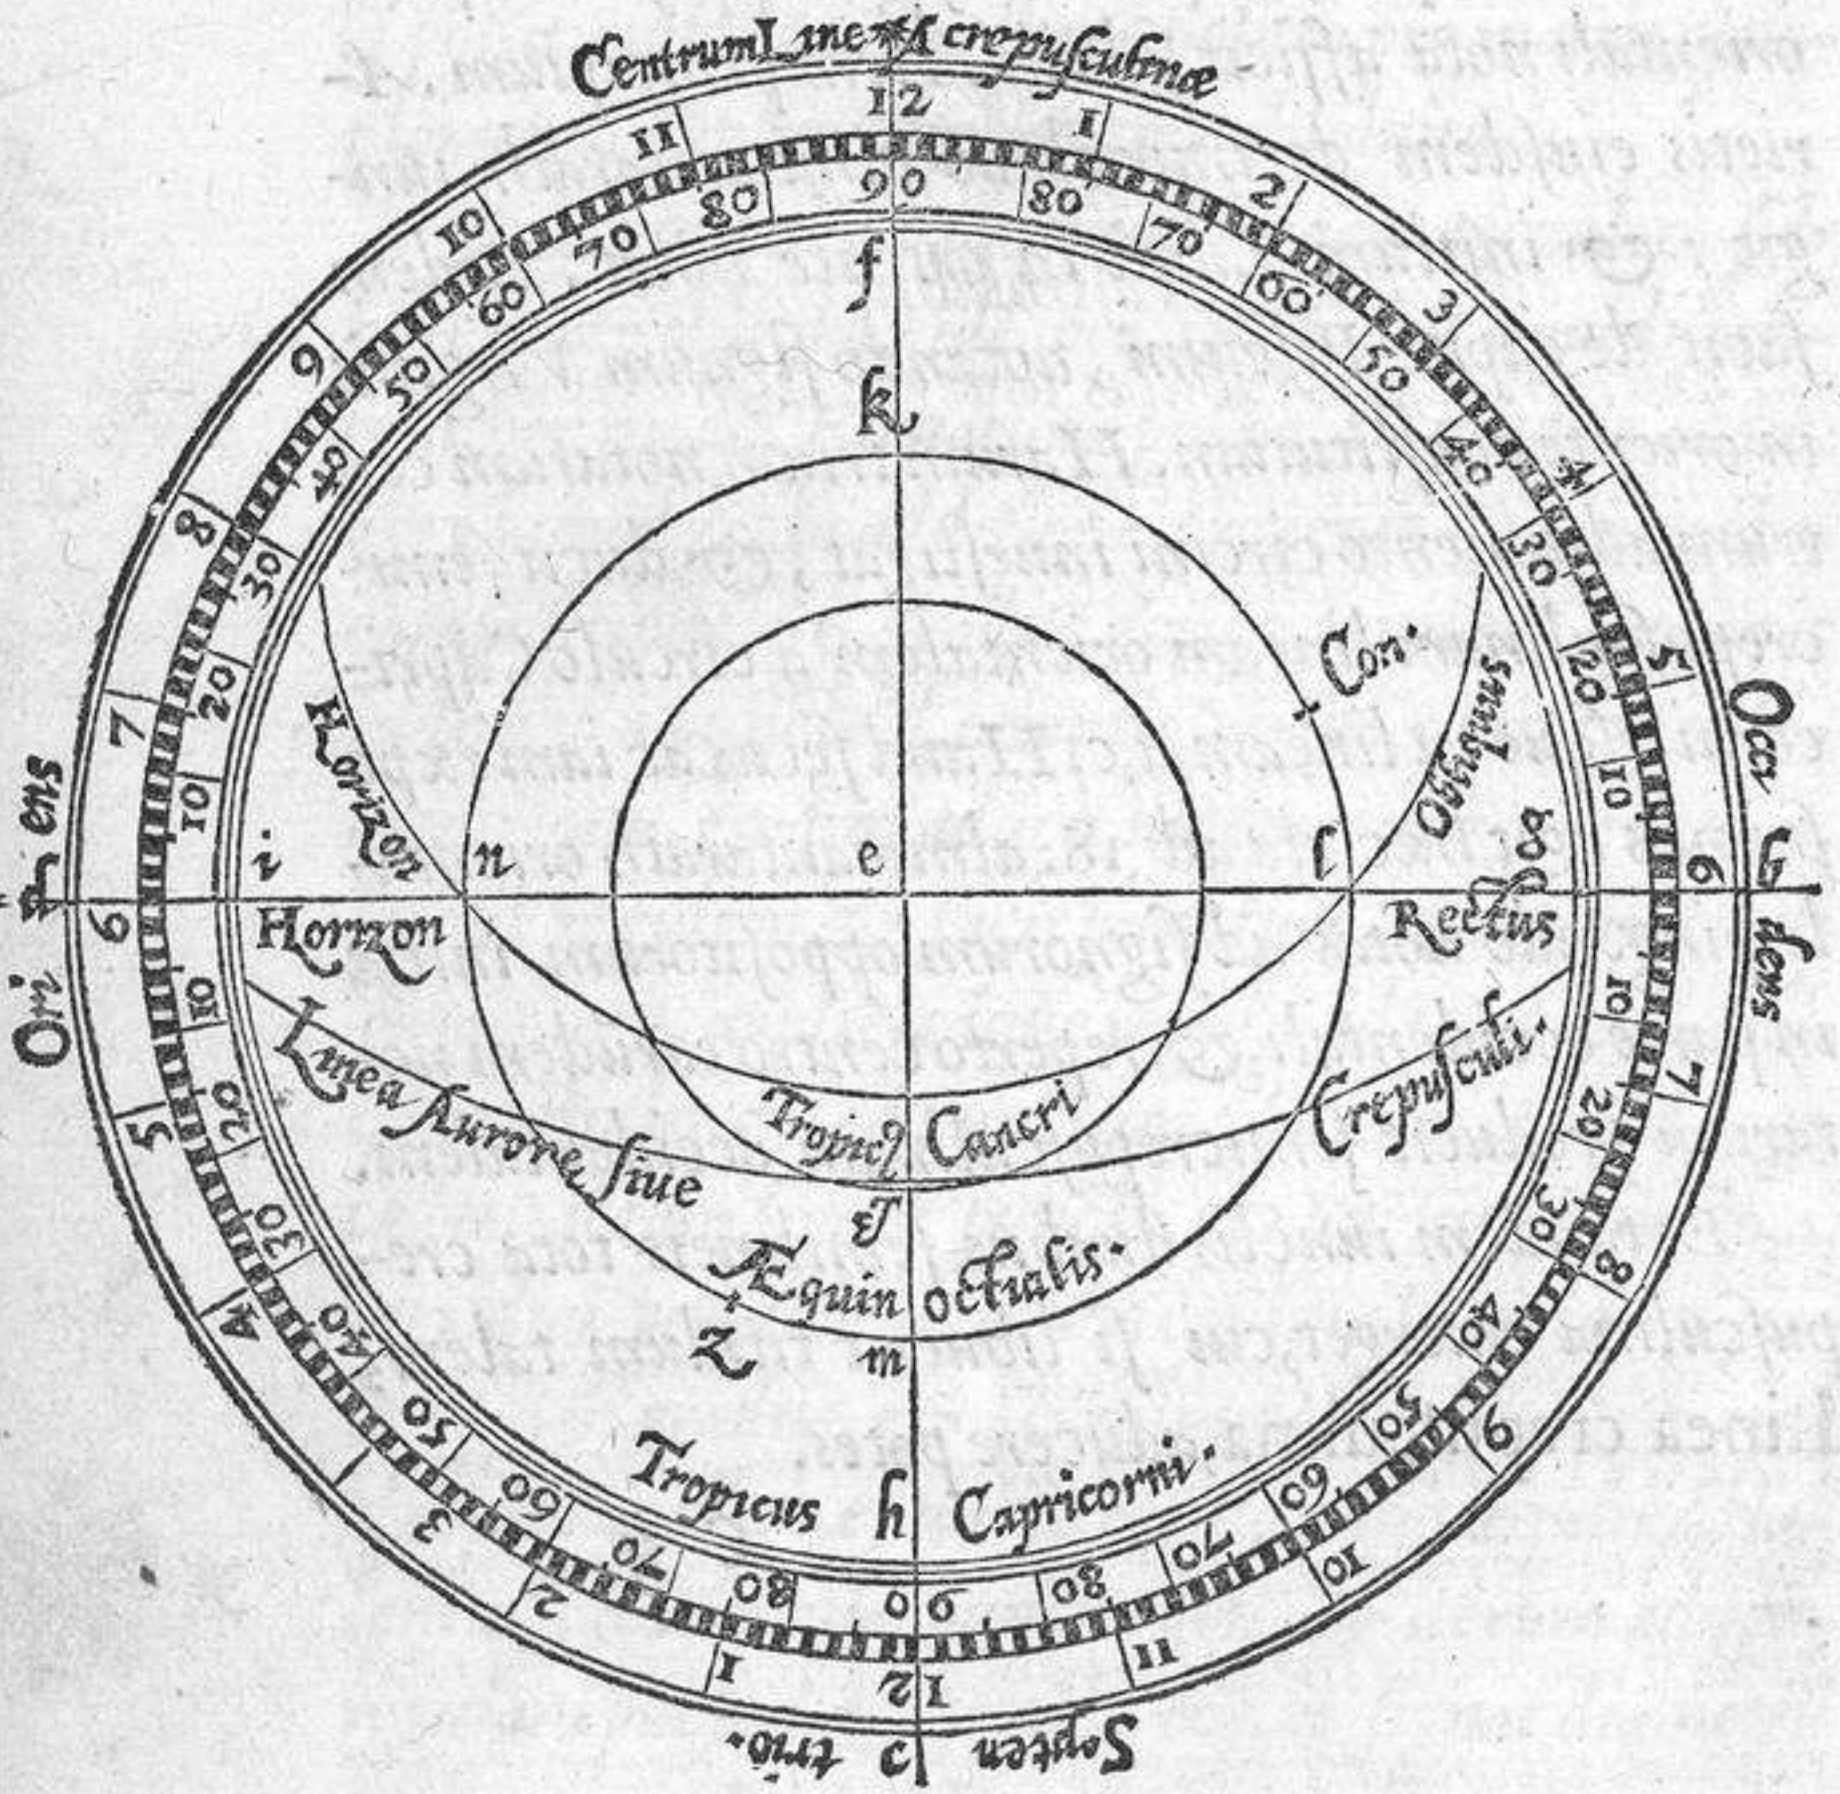 Centrum Lineæ A crepusculinæ
12 1 2 3 4 5 6 7 8 9 10 11 12 1 2 3 4 5 6 7 8 9 10 11
90 80 70 60 50 40 30 20 10
10 20 30 40 50 60 70 80 90
80 70 60 50 40 30 20 10
10 20 30 40 50 60 70 80
f
k
Con.
Horizon
Obliquus
Occ dens
Ori ens
i n e l
Horizon
Rectus
Linea Auroræ siue Crepusculi.
Tropicꝰ Cancri
Æquin octialis.
Z m
Tropicus h Capricorni.
Septen c trio.